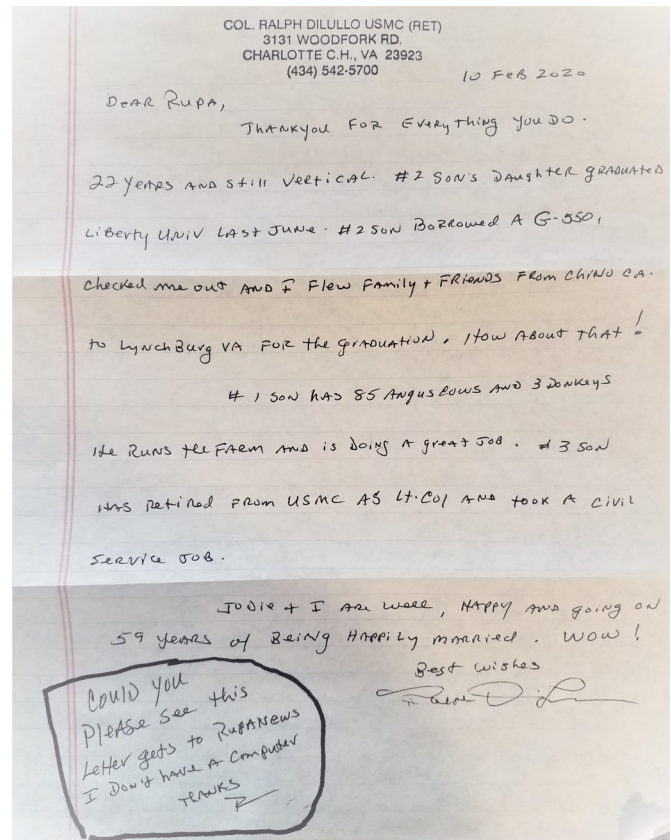 COL. RALPH DILULLO USMC (RET)
3131 WOODFORK RD.
CHARLOTTE C.H., VA 23923
(434) 542-5700
10 FEB 2020
DEAR RUPA,
THANKYOU FOR EVERYTHING YOU DO.
22 YEARS AND STILL VERTICAL. #2 SON'S DAUGHTER GRADUATED
LIBERTY UNIV LAST JUNE. #2 SON BORROWED A G-550,
CHECKED ME OUT AND I FLEW FAMILY + FRIENDS FROM CHINO CA.
TO LYNCHBURG VA FOR THE GRADUATION. HOW ABOUT THAT!
# 1 SON HAS 85 ANGUS COWS AND 3 DONKEYS
HE RUNS THE FARM AND IS DOING A GREAT JOB. # 3 SON
HAS RETIRED FROM USMC AS LT. COL AND TOOK A CIVIL
SERVICE JOB.
JODIE + I ARE WELL, HAPPY AND GOING ON
59 YEARS OF BEING HAPPILY MARRIED. WOW!
BEST WISHES
COULD YOU
PLEASE SEE THIS
LETTER GETS TO RUPANEWS
I DON'T HAVE A COMPUTER
THANKS
R